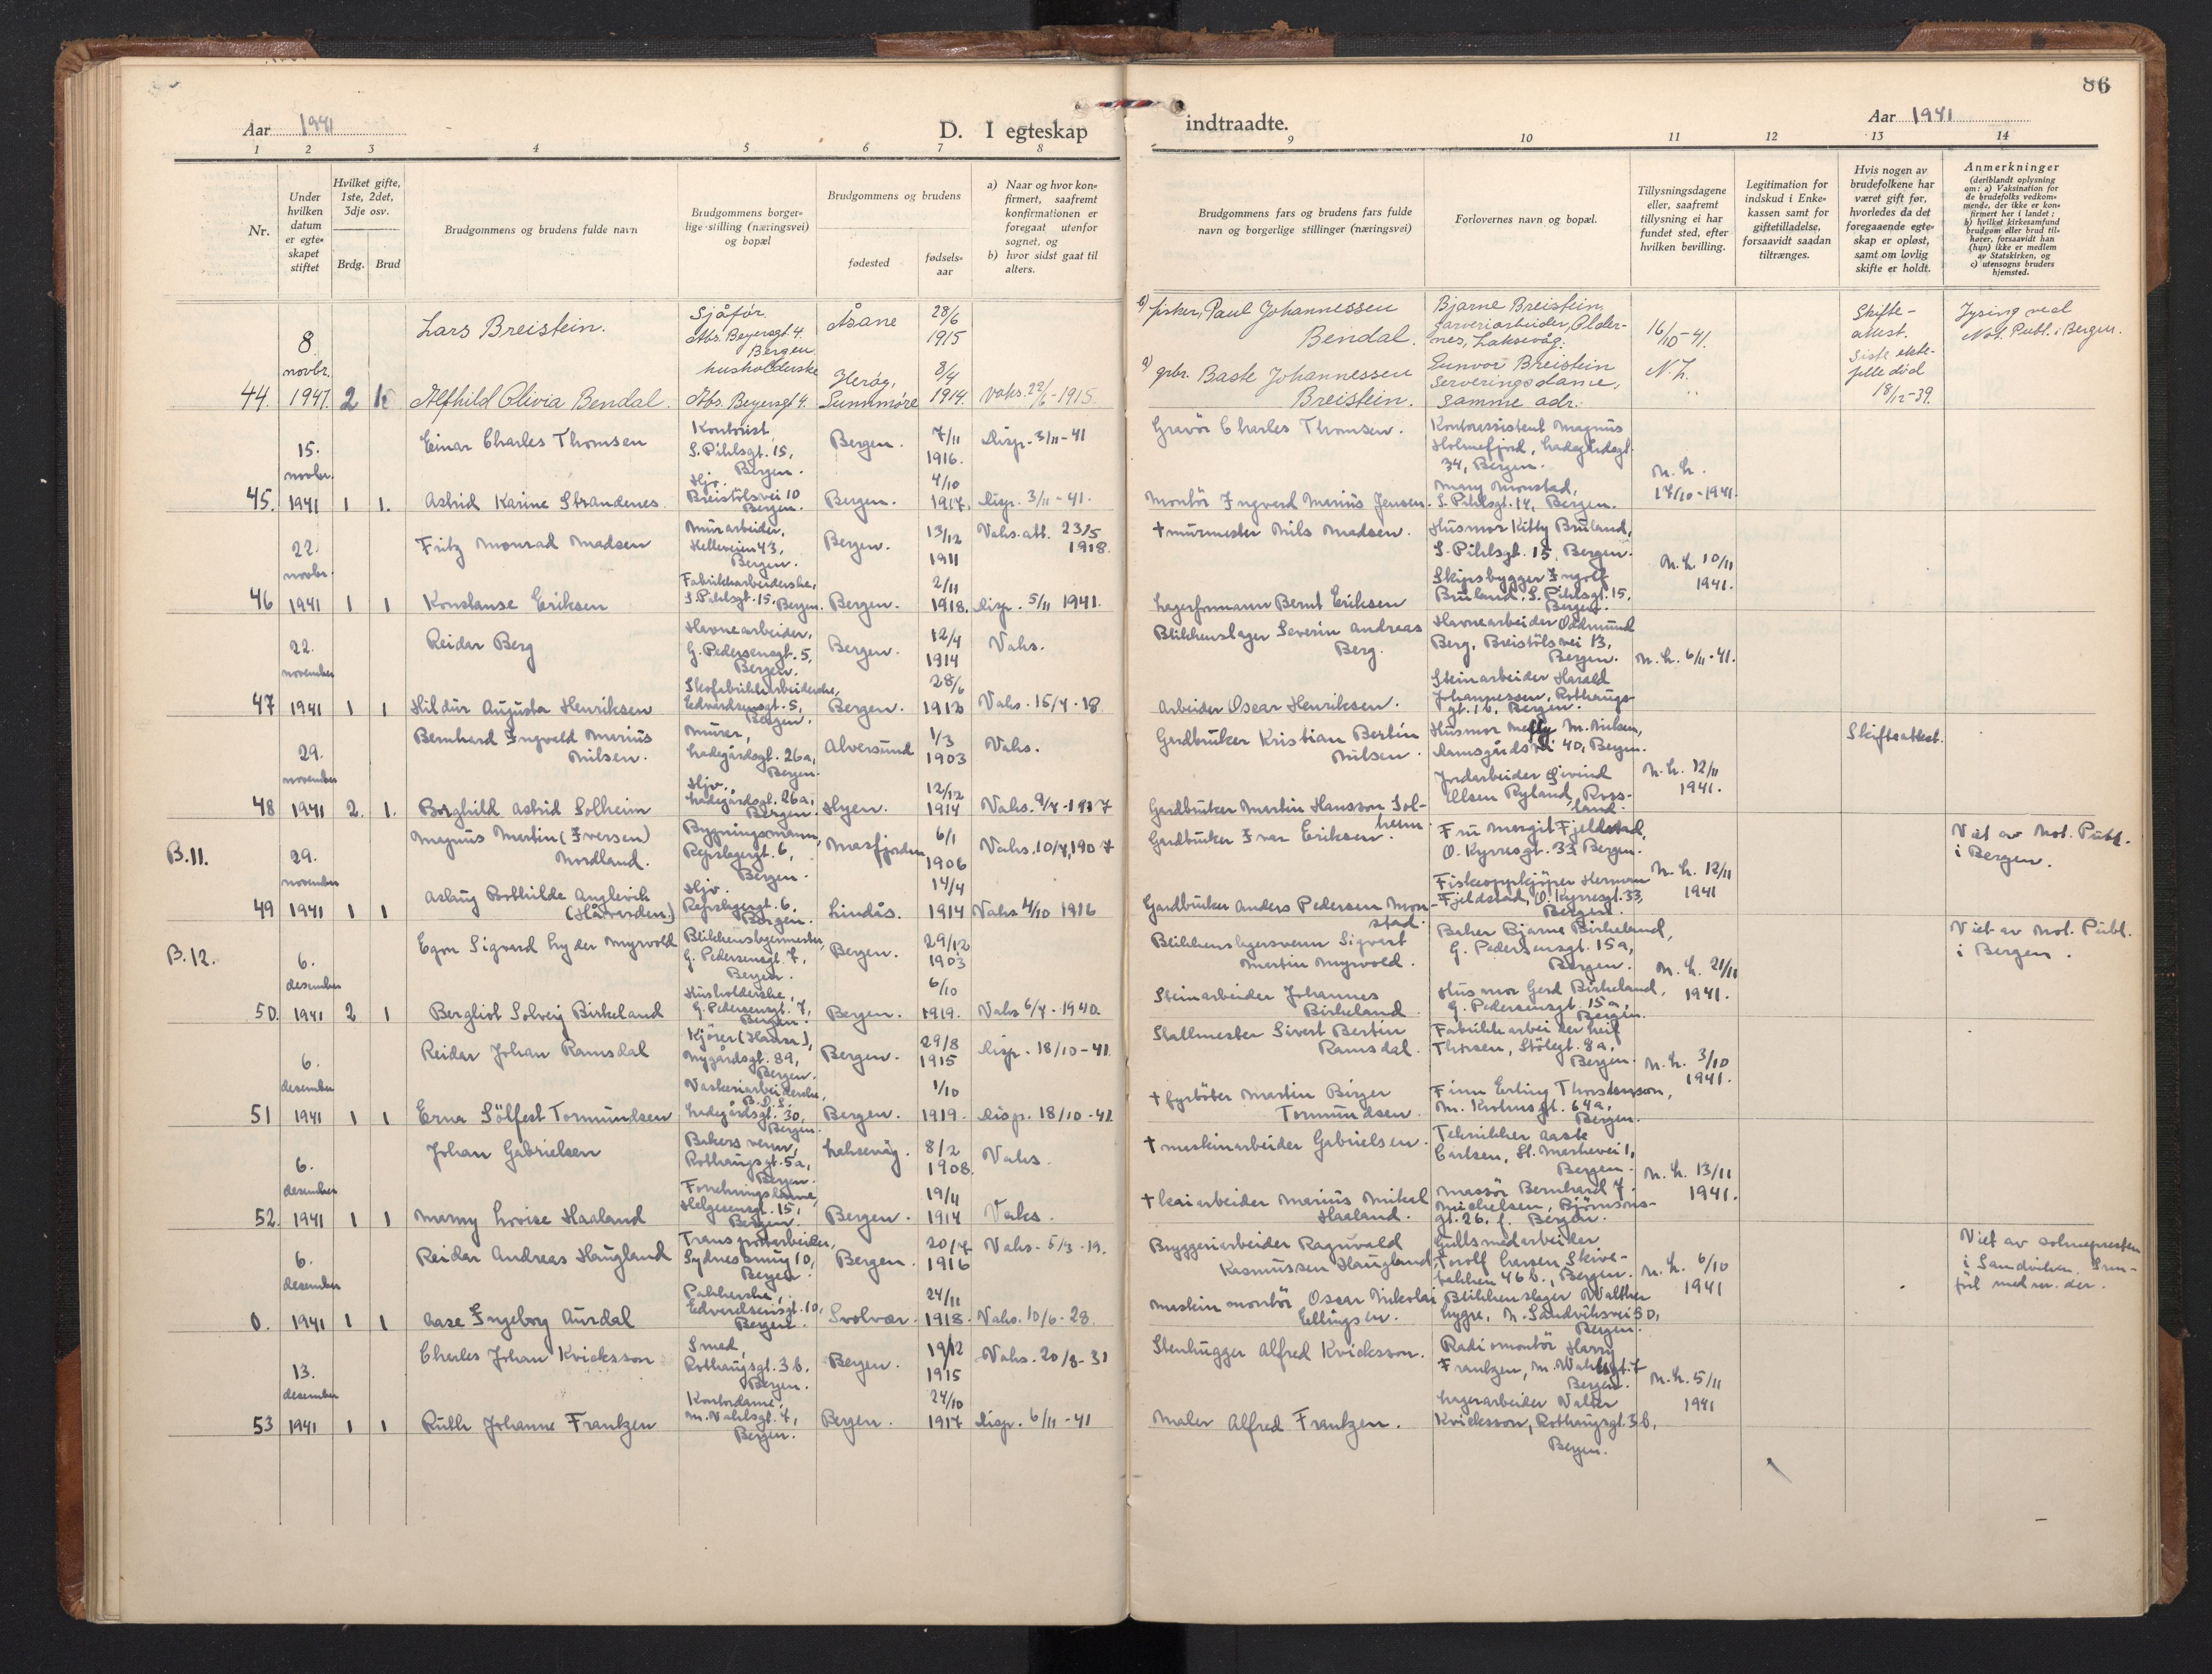 86
Aar 1941
D. I egteskap
indtraadte.
Aar 1941
1 2 3 4 5 6 7 8 9 10 11 12 13 14
Nr.
Under hvilken datum er egte-skapet stiftet
Hvilket gifte, 1ste, 2det, 3dje osv.
Brdg. Brud
Brudgommens og brudens fulde navn
Brudgommens borger-lige stilling (næringsvei) og bopæl
Brudgommens og brudens
fødested
fødsels-aar
a) Naar og hvor kon-firmert, saafremt konfirmationen er foregaat utenfor sognet, og
b) hvor sidst gaat til alters.
Brudgommens fars og brudens fars fulde navn og borgerlige stillinger (næringsvei)
Forlovernes navn og bopæl.
Tillysningsdagene eller, saafremt tillysning ei har fundet sted, efter hvilken bevilling.
Legitimation for indskud i Enke-kassen samt for giftetilladelse, forsaavidt saadan tiltrænges.
Hvis nogen av brudefolkene har været gift før, hvorledes da det foregaaende egte-skap er opløst, samt om lovlig skifte er holdt.
Anmerkninger
(deriblandt oplysning om: a) Vaksination for de brudefolks vedkom-mende, der ikke er kon-firmert her i landet; b) hvilket kirkesamfund brudgom eller brud til-hører, forsaavidt han (hun) ikke er medlem av Statskirken, og c) utensogns bruders hjemsted.
44. 8. novbr. 1941. 2
Lars Breistein.
Sjåfør. Abs. Beyersgt. 4. Bergen
Åsane
28/6 1915
b) fisker, Paul Johannessen Bendal.
Bjarne Breistein, garveriarbeider, Older-nes, Laksevåg.
16/10-41.
Skifte-attest. Siste ekte-felle død 18/12-39.
Lysing ved Not. Publ. i Bergen.
Alfhild Olivia Bendal.
husholderske Abs. Beyersgt 4.
Herøy, Sunnmøre
8/4 1914.
Vaks. 22/6-1915.
a) gbr. Baste Johannessen Breistein.
Gunvor Breistein Serveringsdame, samme adr.
N.L.
45. 15. novbr. 1941 1 1.
Einar Charles Thomsen
Kontorist, S. Pihlsgt. 15, Bergen.
Bergen.
7/11 1916.
Disp. 3/11-41
Gravör Charles Thomsen.
Kontorassistent Magnus Holmefjord, Ladegårdsgt. 34, Bergen.
N.L. 17/10-1941.
Astrid Karine Strandenes.
Hjv. Breistölsvei 10 Bergen.
Bergen.
4/10 1917.
Disp. 3/11-41.
Montör Ingvard Marius Jensen.
Mary Monstad, S. Pihlsgt. 14, Bergen.
46 22. novbr. 1941 1 1
Fritz Monrad Madsen
Murarbeider, Helleveien 43, Bergen.
Bergen.
13/12 1911
Vaks. att. 23/5 1918.
† murmester Nils Madsen.
Husmor Kitty Bruland, S. Pihlsgt. 15, Bergen.
N.L. 10/11 1941.
Konstanse Eriksen
Fabrikkarbeiderske, S. Pihlsgt. 15, Bergen.
Bergen.
2/11 1918.
Disp. 5/11 1941.
Lagerformann Bernt Eriksen
Skipsbygger Ingolf Bruland, S. Pihlsgt. 15, Bergen.
47 22. november 1941 1 1
Reidar Berg
Havnearbeider, G. Pedersensgt. 5, Bergen.
Bergen.
12/4 1914
Vaks.
Blikkenslager Severin Andreas Berg.
Havnearbeider Oddmund Berg, Breistölsvei 13, Bergen.
N.L. 6/11-41.
Hildur Augusta Henriksen
Skofabrikkarbeiderske, Edvardsensgt. 5, Bergen.
Bergen.
28/6 1913
Vaks. 15/4-18
Arbeider Oscar Henriksen.
Steinarbeider Harald Johannessen, Rothaugs-gt. 1 b, Bergen.
48 29. november 1941 2. 1.
Bernhard Ingvald Marius Nilsen.
Murer, Ladegårdsgt. 26a, Bergen.
Alversund
1/3 1903
Vaks.
Gardbruker Kristian Bertin Nilsen
Husmor Melly M. Nilsen, Damsgårdsvei 40, Bergen.
N.L. 12/11 1941.
Skifteattest.
Borghild Astrid Solheim
Hjv. Ladegårdsgt. 26a, Bergen.
Hyen.
12/12 1914
Vaks. 9/7-1917
Gardbruker Martin Hansson Sol-heim.
Jordarbeider Eivind Olsen Ryland, Ross-land.
B.11. 49 29. november 1941 1 1
Magnus Martin (Iversen) Nordland.
Bygningsmann, Repslagergt. 6, Bergen.
Masfjorden
6/1 1906
Vaks. 10/7, 1907
Gardbruker Ivar Eriksen
Fru Margit Fjeldstad, O. Kyrresgt. 33 Bergen.
N.L. 12/11 1941
Viet av Not. Publ. i Bergen.
Aslaug Bothilde Anglevik (Håvarden.)
Hjv. Repslagergt. 6, Bergen.
Lindås.
14/4 1914
Vaks 4/10 1916
Gardbruker Anders Pedersen Mon-stad.
Fiskeoppkjöper Herman Fjeldstad, O. Kyrresgt. 33, Bergen.
B.12. 50. 6. desember 1941 2 1
Egon Sigvard Lyder Myrvold
Blikkenslagermester, G. Pedersensgt. 7, Bergen.
Bergen.
29/12 1903
Blikkenslagersvenn Sigvart Martin Myrvold.
Baker Bjarne Birkeland, G. Pedersensgt. 15a, Bergen.
N.L. 21/11 1941.
Viet av Not. Publ. i Bergen.
Bergliot Solveig Birkeland
Husholderske, G. Pedersensgt. 7, Bergen.
Bergen.
6/10 1919.
Vaks 6/4-1940.
Steinarbeider Johannes Birkeland
Husmor Gerd Birkeland, G. Pedersensgt. 15a, Bergen.
51 6. desember 1941 1 1
Reidar Johan Ramsdal
Kjörer (Hansa), Nygårdsgt. 89, Bergen.
Bergen.
29/8 1915
Disp. 18/10-41.
Stallmester Sivert Bertin Ramsdal.
Fabrikkarbeider Leif Thorsen, Stölegt. 8a, Bergen.
N.L. 3/10 1941.
Erna Sölfest Tormundsen
Vaskeriarbeiderske, B.D.S. Ladegårdsgt. 30, Bergen.
Bergen.
1/10 1919.
Disp. 18/10-41
† fyrböter Martin Birger Tormundsen.
Finn Erling Thorstensen, M. Krohnsgt. 64a, Bergen.
52. 6. desember 1941 1 1
Johan Gabrielsen
Bakersvenn, Rothaugsgt. 5a, Bergen.
Laksevåg.
8/2 1908.
Vaks.
† maskinarbeider Gabrielsen.
Tekniker Aaste Carlsen, St. Markevei 1, Bergen.
N.L. 13/11 1941.
Marny Lovise Haaland
Helgesensgt. 15, Bergen.
Bergen.
19/11 1914
Vaks.
† kaiarbeider Marius Mikal Haaland.
Massör Bernhard J. Michelsen, Björnsons-gt. 26, Bergen.
0. 6. desember 1941 1 1
Reidar Andreas Haugland
Transportarbeider, Sydnessmug 10, Bergen
Bergen.
20/7 1916
Vaks. 5/3-19.
Bryggeriarbeider Ragnvald Rasmussen Haugland,
Gullsmedarbeider Torolf Larsen, Skive-bakken 46 b., Bergen.
N.L. 6/10 1941
Viet av soknepresten i Sandviken.
Aase Ingeborg Aurdal
Pakkerske, Edvardsensgt. 10, Bergen.
Svolvær.
24/11 1918.
Vaks. 10/6-28.
Maskinmontör Oscar Nikolai Ellingsen.
Blikkenslager Walther Lygre, N. Sandviksvei 50, Bergen.
53 13. desember 1941 1 1
Charles Johan Kvicksson
Smed, Rothaugsgt. 3 b, Bergen.
Bergen.
19/12 1915
Vaks. 20/8-31
Stenhugger Alfred Kvicksson.
Radiomontör Harry Frantzen, M. Wahlsgt. 7 Bergen.
N.L. 5/11 1941
Ruth Johanne Frantzen
Kontordame, M. Vahlsgt. 7, Bergen.
Bergen.
24/10 1917
Disp. 6/11-41
Maler Alfred Frantzen.
Lagerarbeider Valter Kvicksson, Rothaugsgt. 3 b, Bergen.